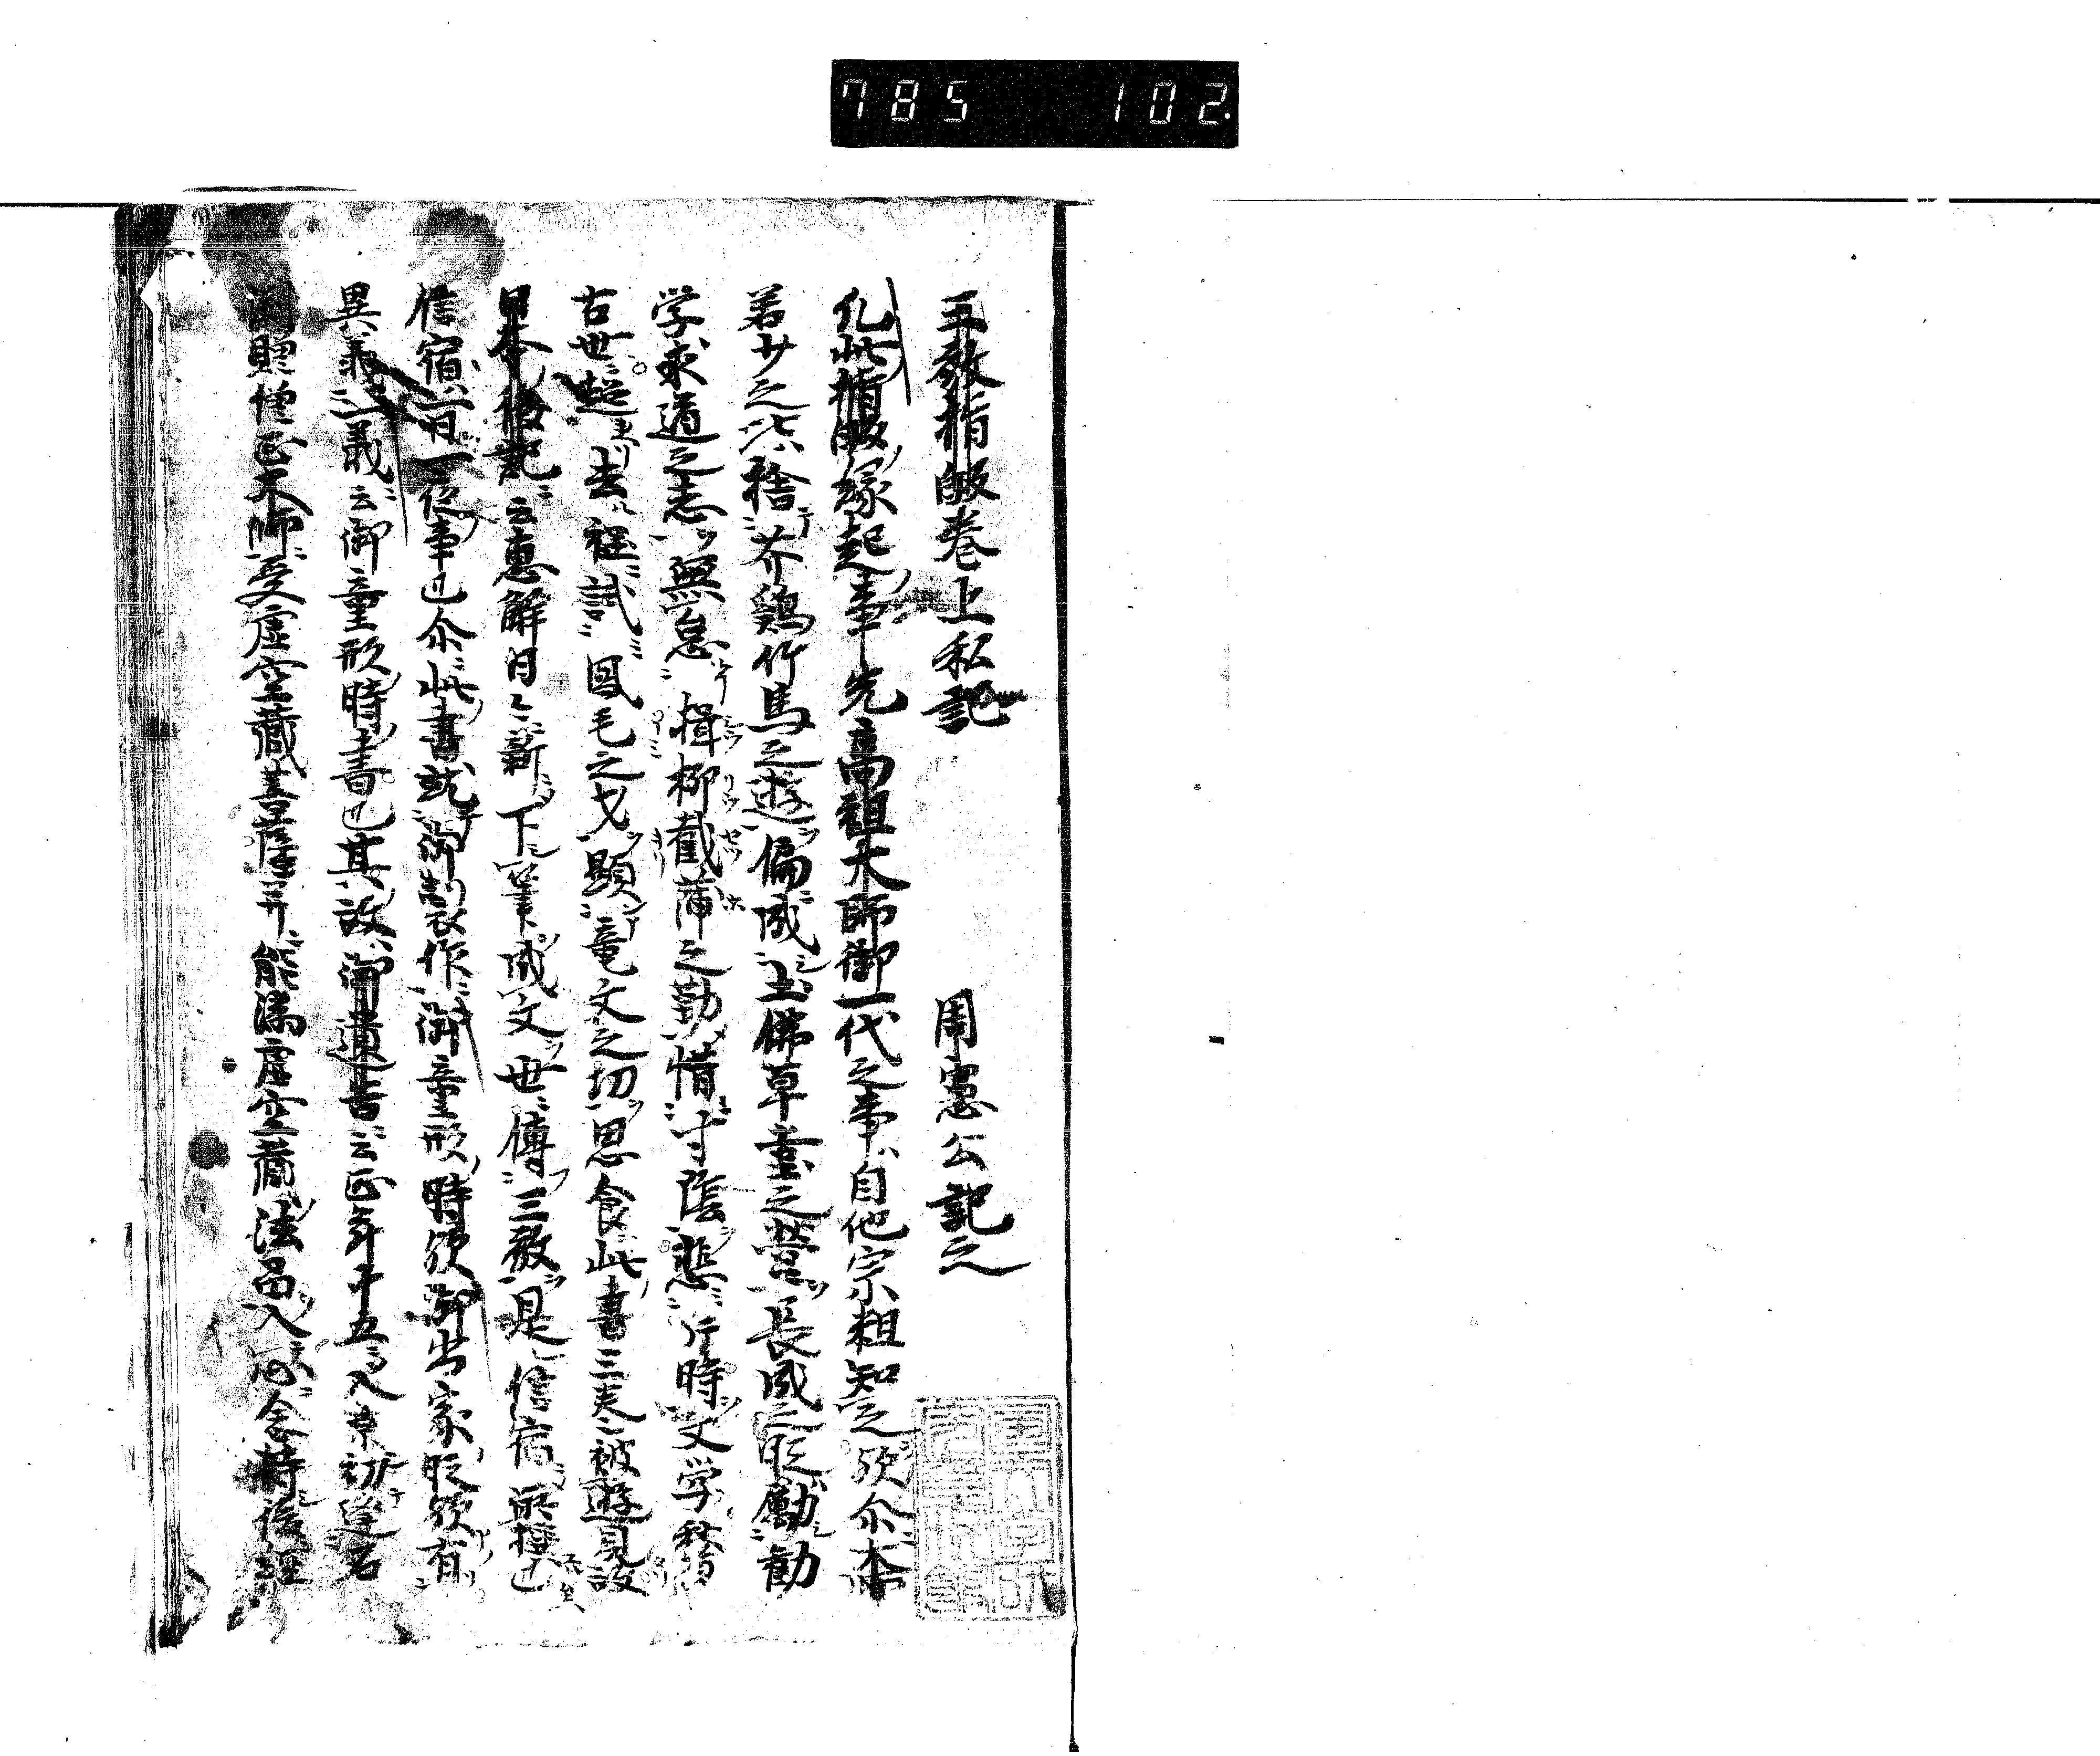 785 102.
三教指皈巻上私記 周憲公記之
凡此指皈縁起事先高祖大師御一代之事自他宗粗知之欤尒本
若少之比捨芥鶏竹馬之遊偏成土佛草堂之營長成之昵勵勧
学求道之志無怠揖柳截蒲之勤惜寸陰悲片時文学秀
古世超去程試鳳毛之才顕竜文之切思食此書三夫被遊見故
日本後記云恵解日々新下筆成文世傳三教是信宿所撰也
信宿一日一夜事也尒此書就御製作御童形時欤御出家昵欤有
異義一義云御童形時書也其故御遺告云正年十五入京初逢石
渕贈僧正大師受虚空蔵菩薩并能満虚空蔵法呂入心念持後経